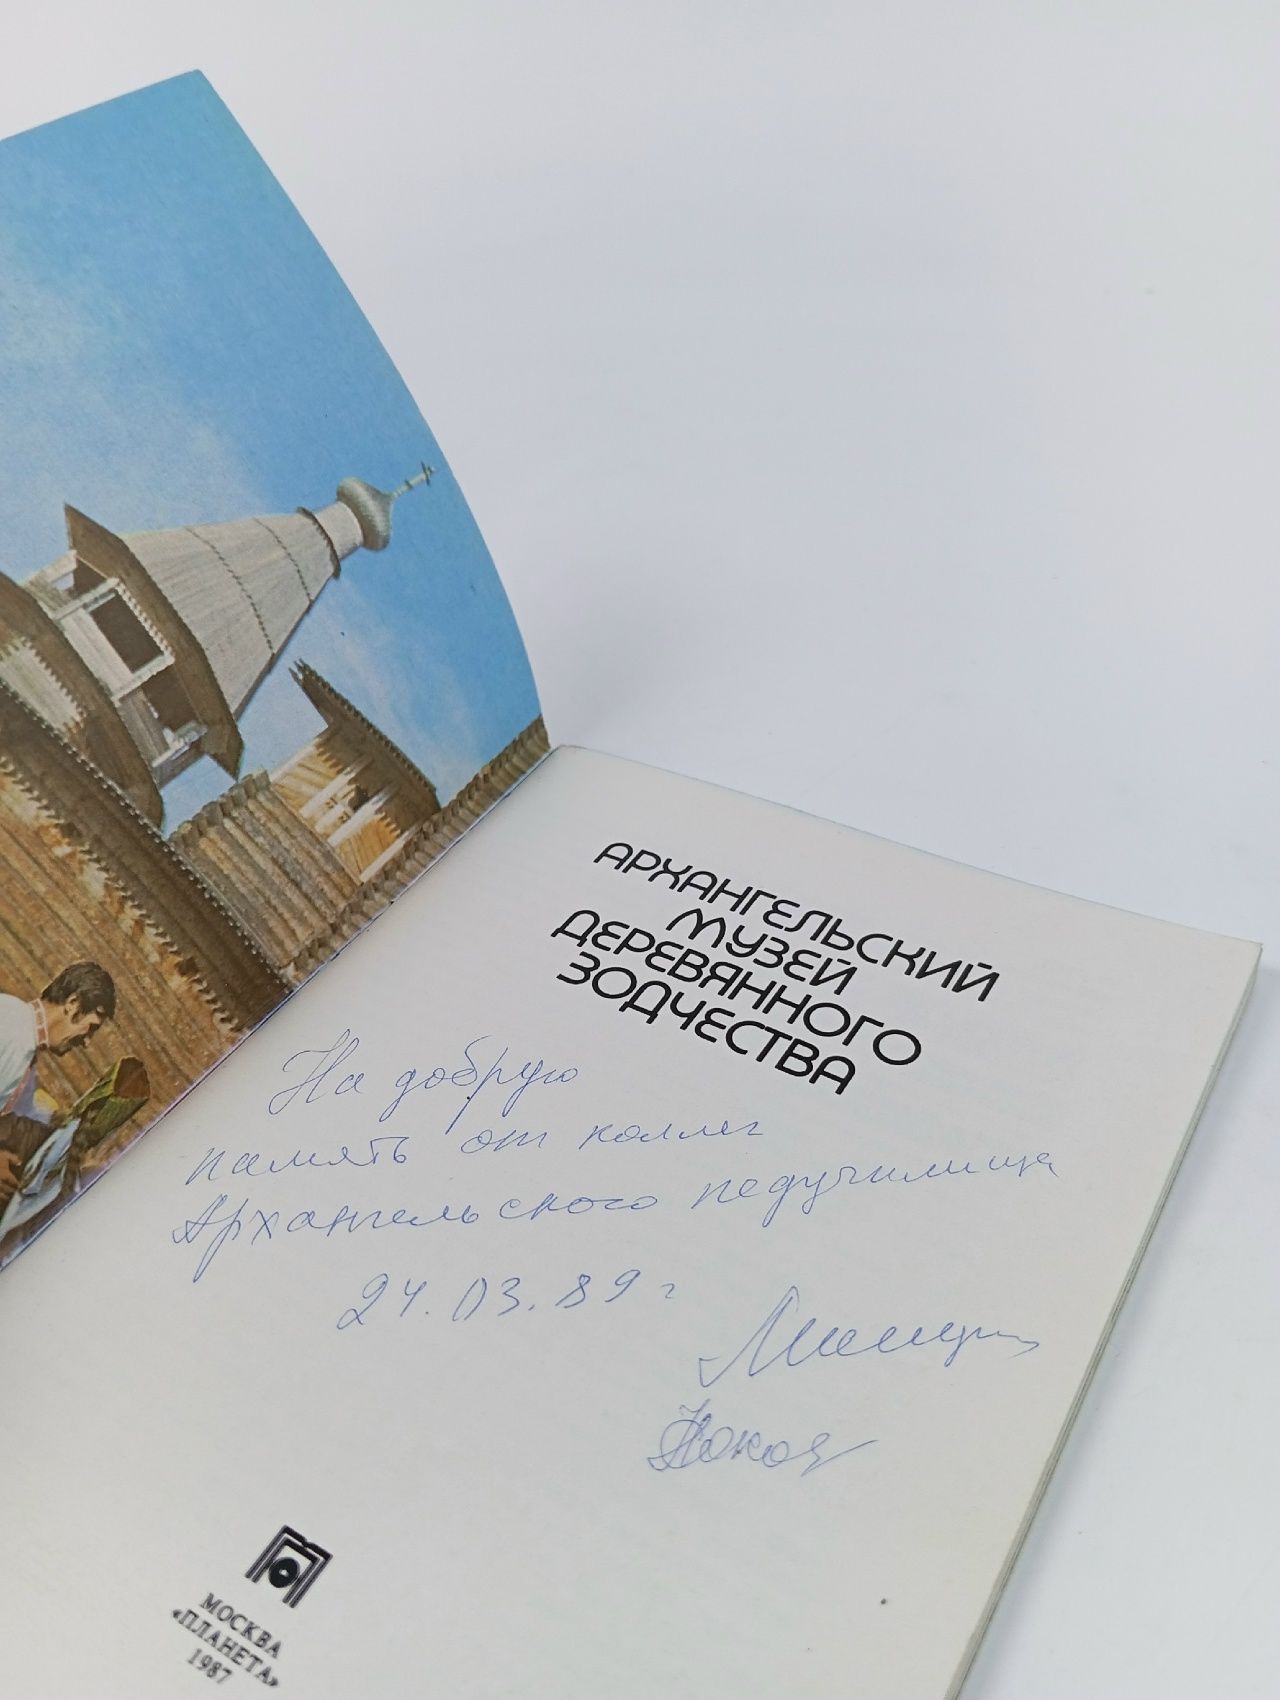 АРХАНГЕЛЬСКИЙ
МУЗЕЙ
ДЕРЕВЯННОГО
ЗОДЧЕСТВА
На добрую
память от коллег
Архангельского педучилища
24.03.89 г
МОСКВА
«ПЛАНЕТА»
1987